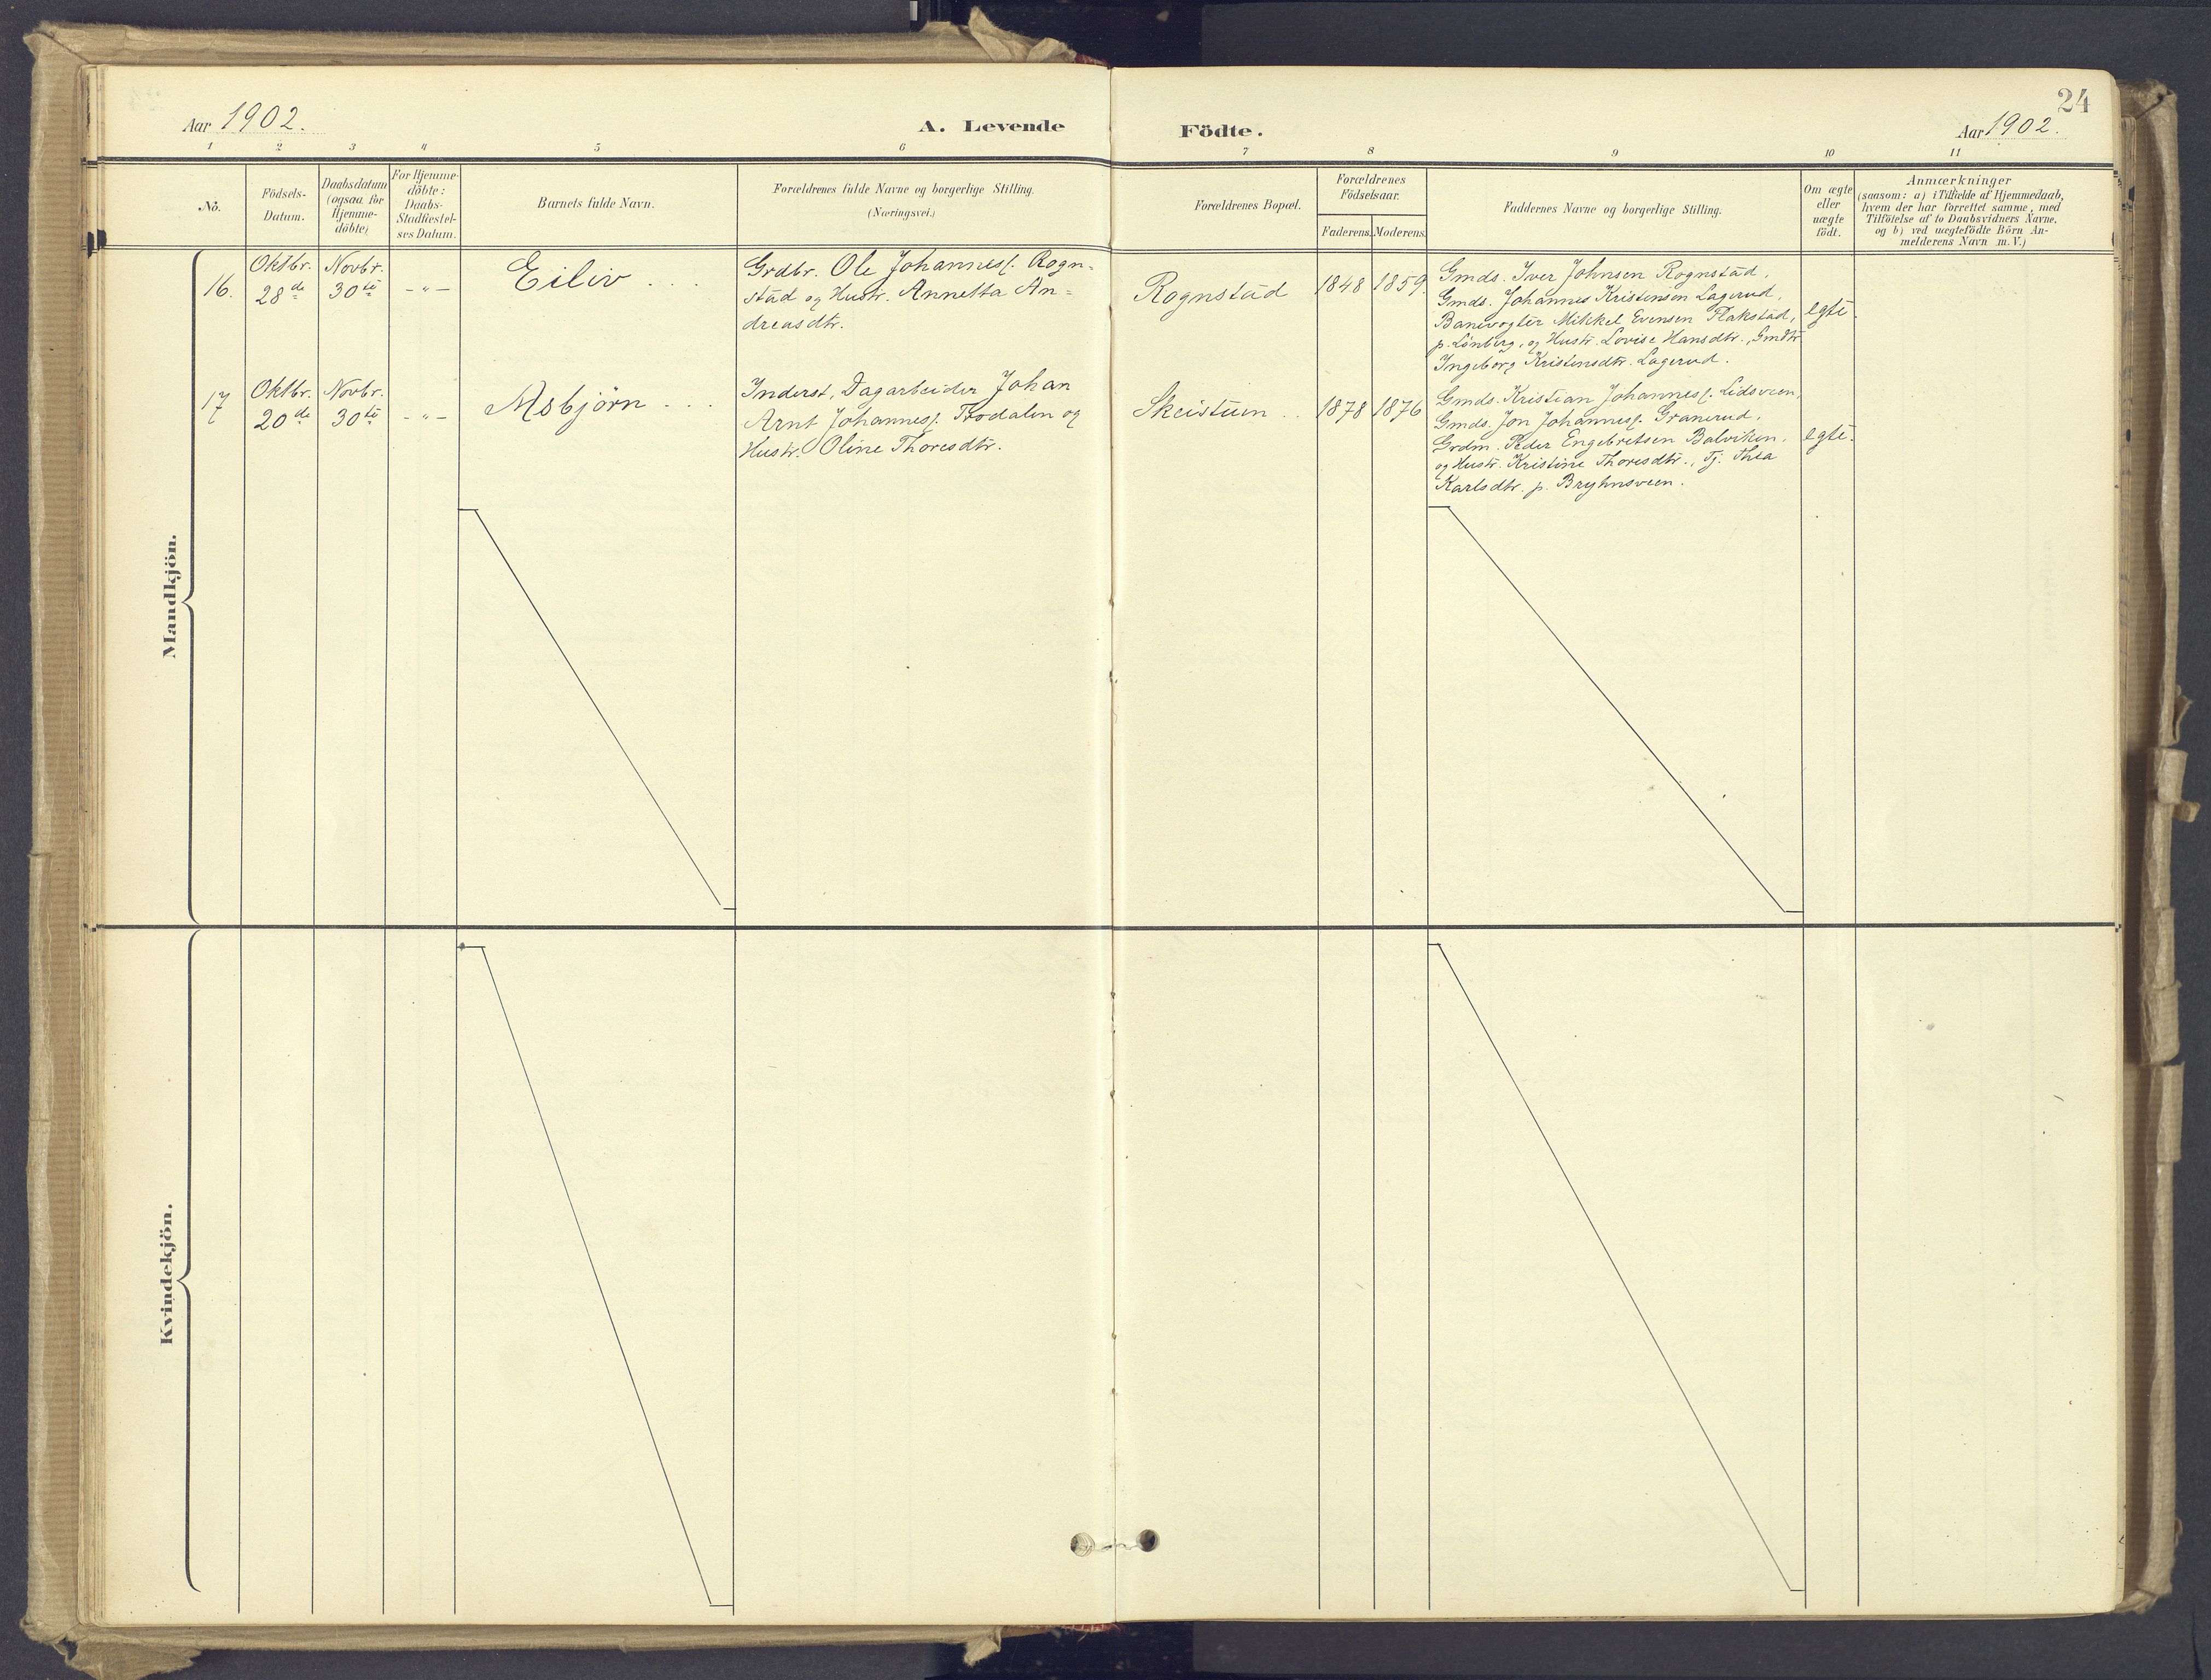 24
Aar 1902.
A. Levende Födte.
Aar 1902.
1 2 3 4 5 6 7 8 9 10 11
No.
Födsels-
Datum.
Daabsdatum
(ogsaa for
Hjemme-
döbte)
For Hjemme-
döbte:
Daabs-
Stadfæstel-
ses Datum.
Barnets fulde Navn.
Forældrenes fulde Navne og borgerlige Stilling.
(Næringsvei.)
Forældrenes Bopæl.
Forældrenes
Födselsaar.
Faderens. Moderens.
Faddernes Navne og borgerlige Stilling.
Om ægte
eller
uægte
født.
Anmærkninger
(saasom: a) i Tilfælde af Hjemmedaab,
hvem der har forrettet samme, med
Tilföielse af to Daabsvidners Navne,
og b) ved uægtefödte Börn An-
melderens Navn m. V.)
Mandkjön.
16.
Oktbr.
28de
Novbr.
30te
- " -
Eiliv . . .
Grdbr. Ole Johanness. Rogn-
stad og Hustr. Annetta An-
dreasdtr.
Rognstad
1848 1859.
Gmds. Iver Johnsen Rognstad,
Gmds. Johannes Kristensen Lagerud,
Banevogter Mikkel Evensen Flakstad,
p. Lønberg, og Hustr. Lovise Hansdtr., Gmdtr.
Ingeborg Kristensdtr. Lagerud.
egte.
17
Oktbr.
20de
Novbr.
30te
- " -
Asbjörn . . .
Inderst, Dagarbeider Johan
Arnt Johanness. Trodalen og
Hustr. Oline Thoresdtr.
Skeistuen . .
1878 1876
Gmds. Kristian Johanness. Lidsveen,
Gmds. Jon Johanness. Granerud,
Grdm. Peder Engebretsen Balviken,
og Hustr. Kristine Thoresdtr., Tj. Thea
Karlsdtr. p. Bryhnsveen.
egte.
Kvindekjön.